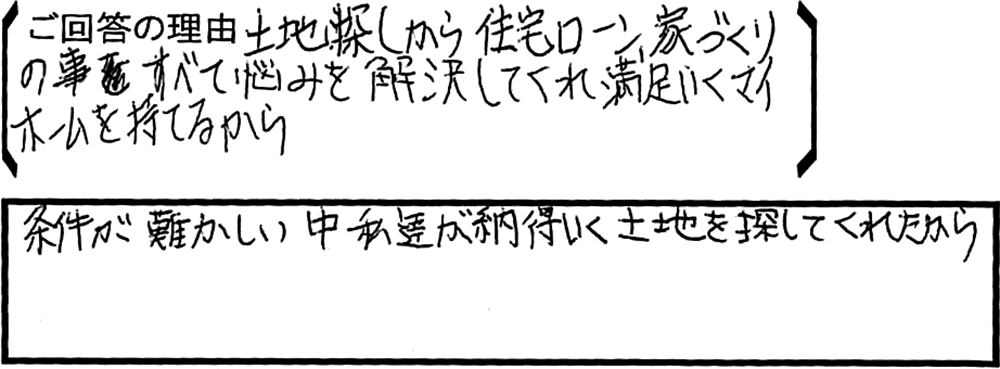 ご回答の理由 土地探しから住宅ローン、家づくり
の事すべて悩みを解決してくれ満足いくマイ
ホームを持てるから
条件が難かしい中私達が納得いく土地を探してくれたから